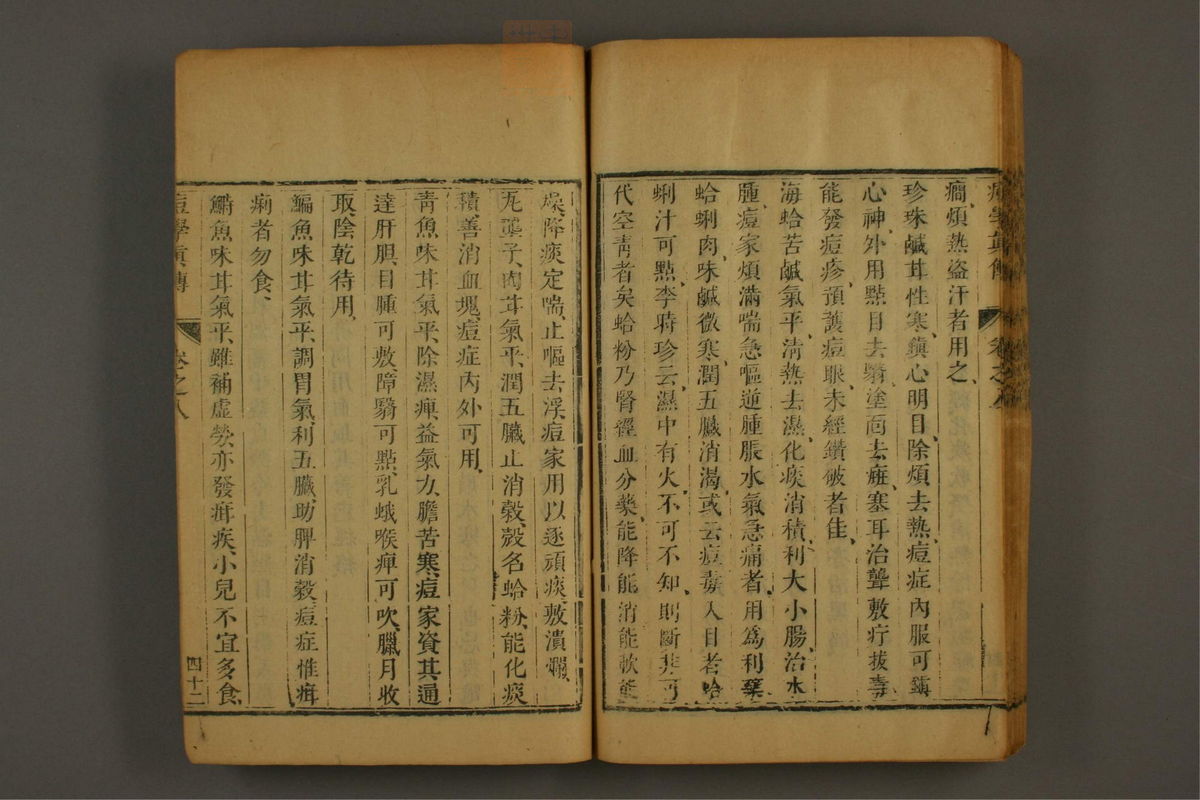 痘學眞傳 卷之八
癇煩熱盜汗者用之、
珍珠鹹甘性寒、鎭心明目除煩去熱、痘症內服可鎭
心神、外用點目去翳、塗面去𤴯、塞耳治聾、敷疔拔毒、
能發痘疹、預護痘眼、未經鑽破者佳、
海蛤苦鹹氣平、淸熱去濕、化痰消積、利大小腸、治水
腫、痘家煩滿喘急嘔逆腫脹水氣急痛者、用爲利藥、
蛤蜊肉、味鹹微寒、潤五臟消渴、或云痘毒入目者、蛤
蜊汁可點、李時珍云、濕中有火、不可不知、則斷非可
代空靑者矣、蛤粉乃腎經血分藥、能降能消能軟能
燥、降痰定喘、止嘔去浮、痘家用以逐頑痰、敷潰爛、
瓦壟子、肉甘氣平、潤五臟止消穀、殼名蛤粉、能化痰
積、善消血塊、痘症內外可用、
靑魚味甘氣平、除濕痺、益氣力、膽苦寒、痘家資其通
達肝胆、目腫可敷、障翳可點、乳蛾喉痺可吹、臘月收
取、陰乾待用、
鯿魚味甘氣平、調胃氣、利五臟、助脾消穀、痘症惟疳
痢者勿食、
鱅魚味甘氣平、雖補虛勞、亦發疳疾、小兒不宜多食、
痘學眞傳 卷之八 四十二